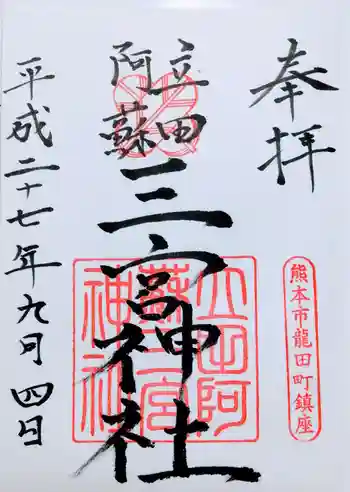 奉拝
熊本市龍田町鎮座
立田
阿蘇
三宮神社
立田阿
蘇三宮
神社
平成二十七年九月四日